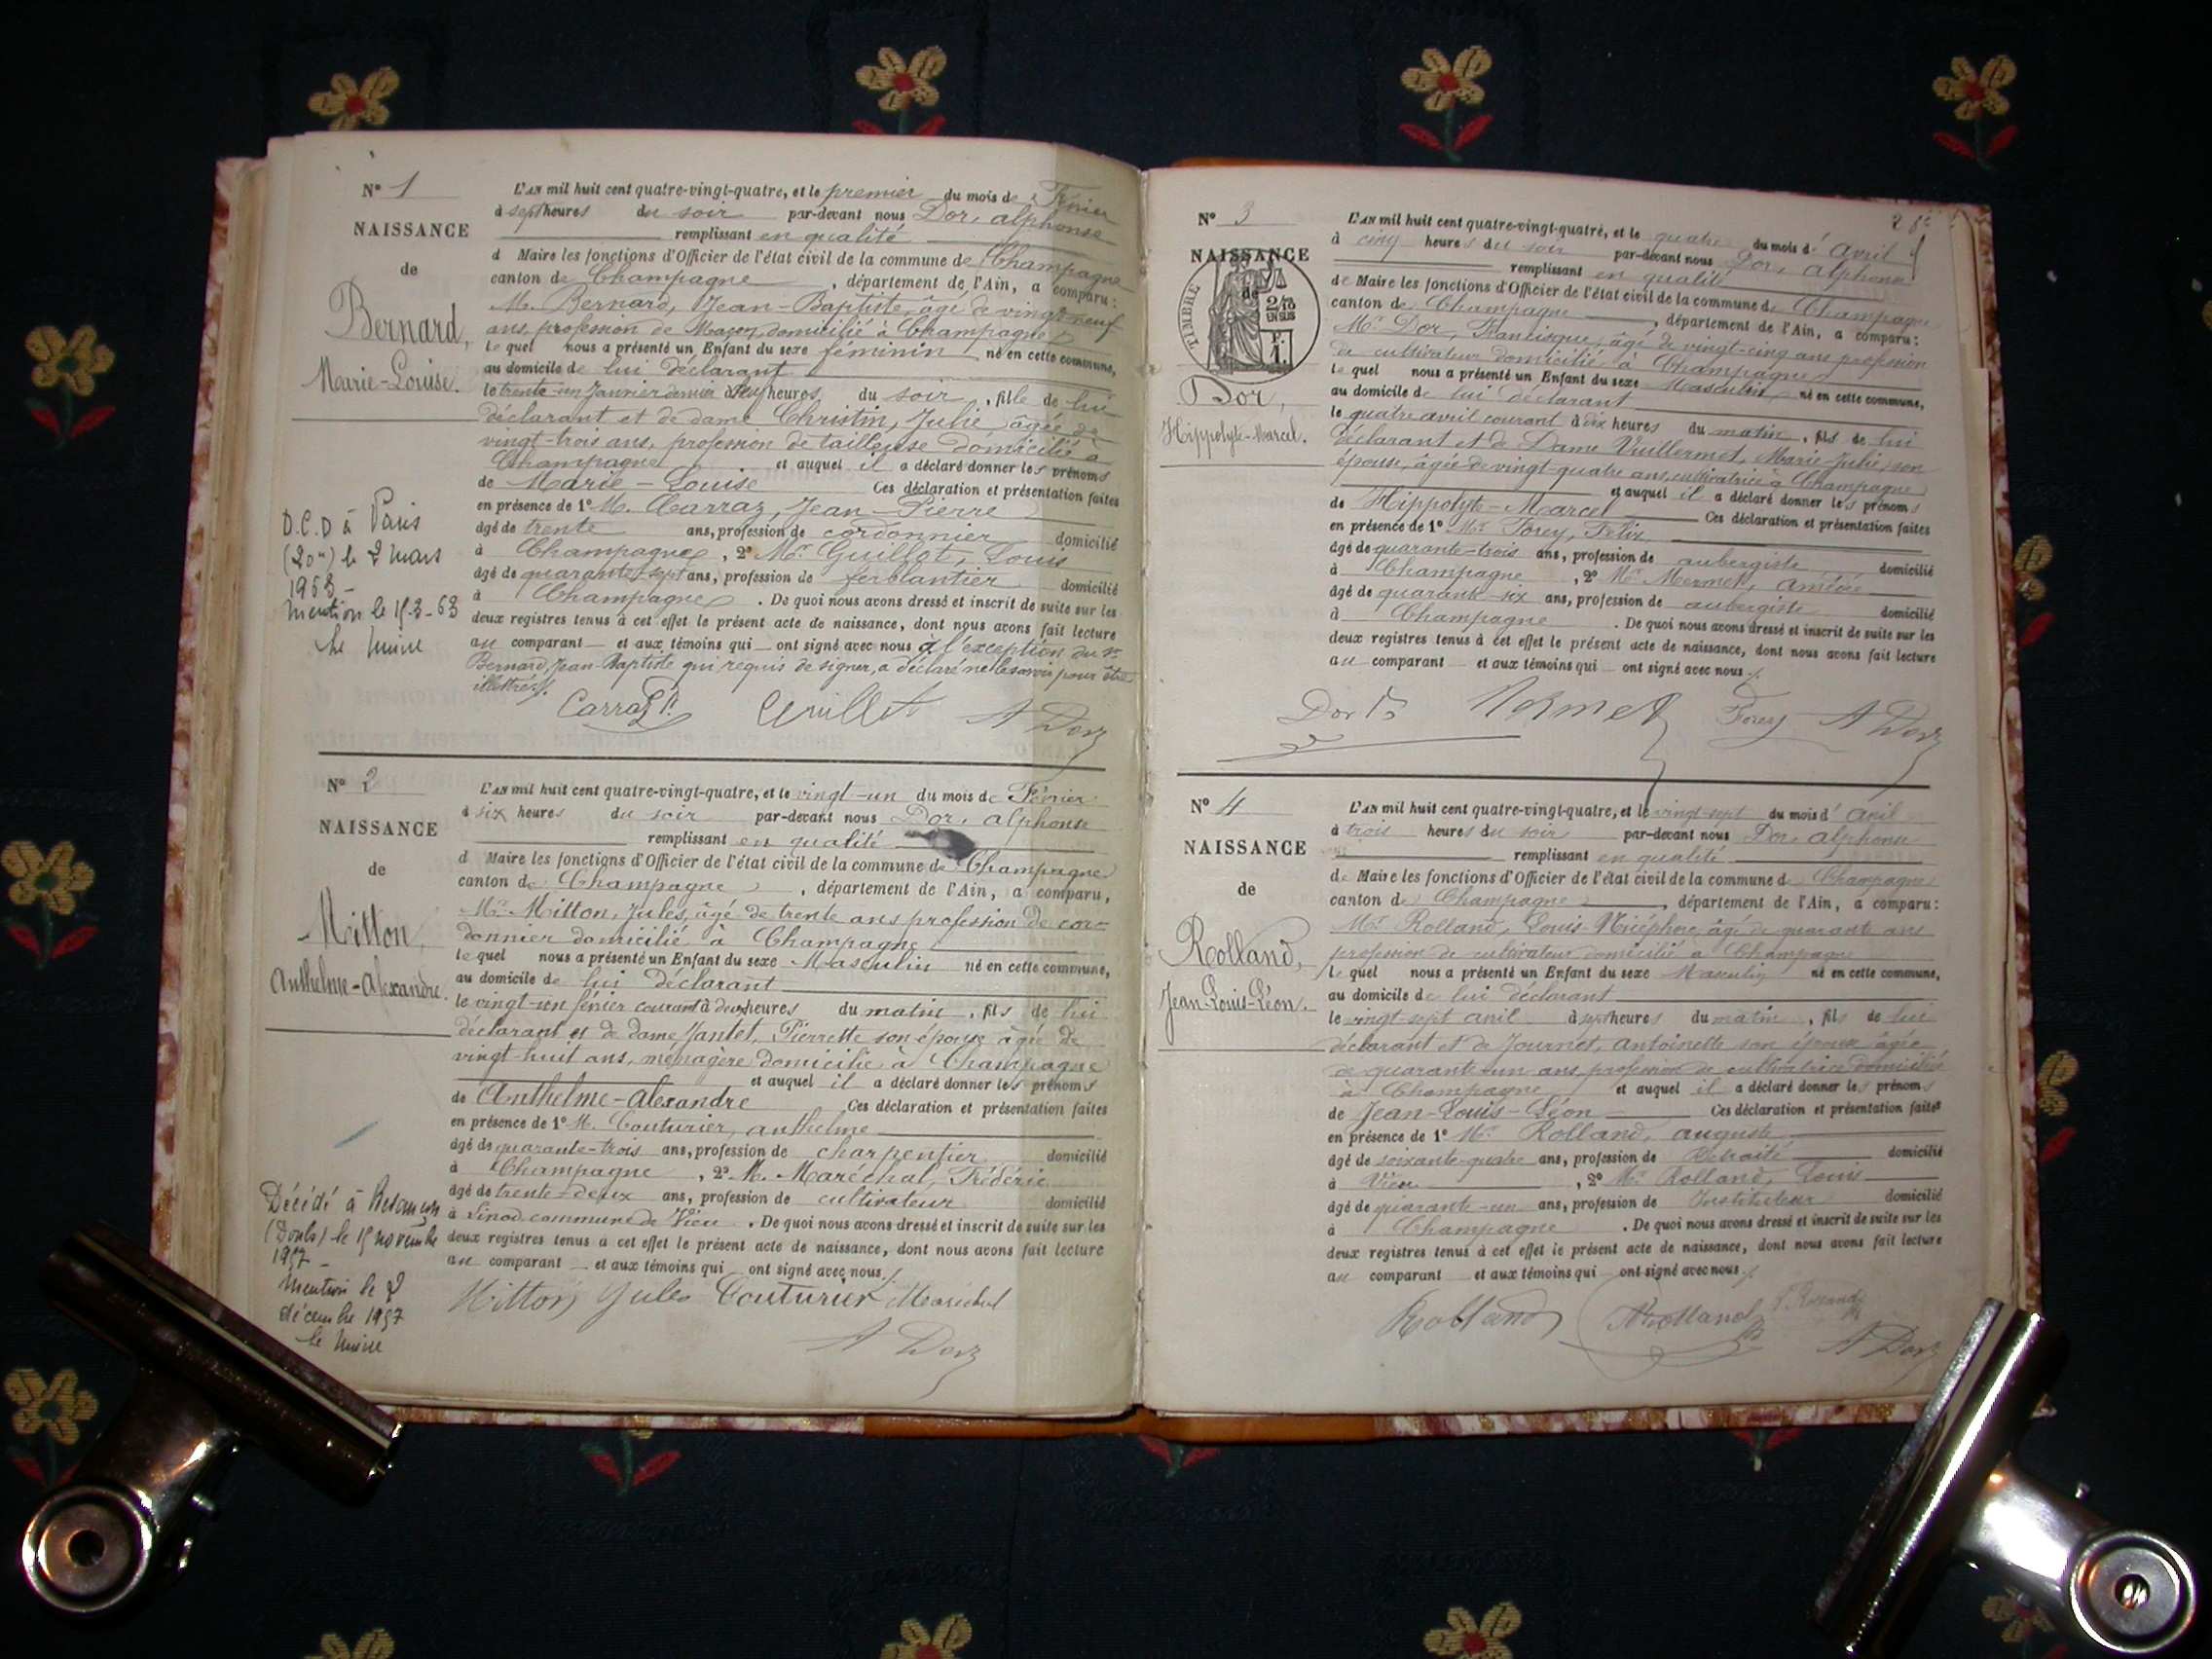 N° 1
NAISSANCE
de
Bernard,
Marie-Louise.
D.C.D à Paris
(20e) le 2 mars
1963 -
Mention le 15-3-63
Le Maire
L'AN mil huit cent quatre-vingt-quatre, et le premier du mois de Février
à sept heures du soir par-devant nous Dor, alphonse
remplissant en qualité
d Maire les fonctions d'Officier de l'état civil de la commune de Champagne
canton de Champagne, département de l'Ain, a comparu:
M. Bernard, Jean-Baptiste, âgé de vingt-neuf
ans, profession de Maçon, domicilié à Champagne
le quel nous a présenté un Enfant du sexe féminin né en cette commune,
au domicile de lui déclarant
le trente-un Janvier dernier à heures du soir, fille de lui
déclarant et de dame Christin, Julie âgée de
vingt-trois ans, profession de tailleuse domicilié à
Champagne et auquel il a déclaré donner les prénoms
de Marie-Louise Ces déclaration et présentation faites
en présence de 1° M. Carraz, Jean-Pierre
âgé de trente ans, profession de cordonnier domicilié
à Champagne, 2° Mr Guillot, Louis
âgé de quarante-sept ans, profession de ferblantier domicilié
à Champagne. De quoi nous avons dressé et inscrit de suite sur les
deux registres tenus à cet effet le présent acte de naissance, dont nous avons fait lecture
au comparant et aux témoins qui ont signé avec nous à l'exception du Sr
Bernard, Jean-Baptiste qui requis de signer, a déclaré ne le savoir pour être
illettré.
Carraz P. Guillot A Dor
N° 2
NAISSANCE
de
Mitton,
Anthelme-Alexandre.
Décédé à Besançon
(Doubs) le 15 novembre
1957 -
Mention le 2
décembre 1957
Le Maire
L'AN mil huit cent quatre-vingt-quatre, et le vingt-un du mois de Février
à six heures du soir par-devant nous Dor, alphonse
remplissant en qualité
d Maire les fonctions d'Officier de l'état civil de la commune de Champagne
canton de Champagne, département de l'Ain, a comparu,
Mr Mitton, Jules, âgé de trente ans profession de cor-
donnier domicilié à Champagne
le quel nous a présenté un Enfant du sexe Masculin né en cette commune,
au domicile de lui déclarant
le vingt-un février courant à deux heures du matin, fils de lui
déclarant et de dame Jantet, Pierrette son épouse âgée de
vingt-huit ans, ménagère domicilié à Champagne
et auquel il a déclaré donner les prénoms
de Anthelme-Alexandre Ces déclaration et présentation faites
en présence de 1° M. Couturier, anthelme
âgé de quarante-trois ans, profession de charpentier domicilié
à Champagne, 2° M. Maréchal, Frédéric
âgé de trente-deux ans, profession de cultivateur domicilié
à Linod commune de Vieu. De quoi nous avons dressé et inscrit de suite sur les
deux registres tenus à cet effet le présent acte de naissance, dont nous avons fait lecture
au comparant et aux témoins qui ont signé avec nous.
Mitton Jules Couturier Maréchal
A Dor
N° 3
NAISSANCE
de
TIMBRE
Dor,
Hippolyte-Marcel.
L'AN mil huit cent quatre-vingt-quatre, et le quatre du mois d' Avril
à cinq heures du soir par-devant nous Dor, alphonse
remplissant en qualité
de Maire les fonctions d'Officier de l'état civil de la commune de Champagne
canton de Champagne, département de l'Ain, a comparu:
Mr Dor, Francisque, âgé de vingt-cinq ans profession
de cultivateur domicilié à Champagne
le quel nous a présenté un Enfant du sexe Masculin né en cette commune,
au domicile de lui déclarant
le quatre avril courant à dix heures du matin, fils de lui
déclarant et de Dame Vuillermet, Marie-Julie, son
épouse, âgée de vingt-quatre ans, cultivatrice à Champagne
et auquel il a déclaré donner les prénoms
de Hippolyte-Marcel Ces déclaration et présentation faites
en présence de 1° Mr Forey, Félix
âgé de quarante-trois ans, profession de aubergiste domicilié
à Champagne, 2° Mr Mermet, Amédée
âgé de quarante-six ans, profession de aubergiste domicilié
à Champagne. De quoi nous avons dressé et inscrit de suite sur les
deux registres tenus à cet effet le présent acte de naissance, dont nous avons fait lecture
au comparant et aux témoins qui ont signé avec nous.
Dor Mermet Forey A Dor
N° 4
NAISSANCE
de
Rolland,
Jean-Louis-Léon.
L'AN mil huit cent quatre-vingt-quatre, et le vingt-sept du mois d' avril
à trois heures du soir par-devant nous Dor, alphonse
remplissant en qualité
de Maire les fonctions d'Officier de l'état civil de la commune de Champagne
canton de Champagne, département de l'Ain, a comparu:
Mr Rolland, Louis-Nicéphore âgé de quarante ans
profession de cultivateur domicilié à Champagne
le quel nous a présenté un Enfant du sexe Masculin né en cette commune,
au domicile de lui déclarant
le vingt-sept avril à sept heures du matin, fils de lui
déclarant et de Journet, Antoinette son épouse âgée
de quarante-un ans, profession de cultivatrice domiciliée
à Champagne et auquel il a déclaré donner les prénoms
de Jean-Louis-Léon Ces déclaration et présentation faites
en présence de 1° Mr Rolland, auguste
âgé de soixante-quatre ans, profession de Retraité domicilié
à Vieu, 2° Mr Rolland, Louis
âgé de quarante-un ans, profession de Instituteur domicilié
à Champagne. De quoi nous avons dressé et inscrit de suite sur les
deux registres tenus à cet effet le présent acte de naissance, dont nous avons fait lecture
au comparant et aux témoins qui ont signé avec nous.
Rolland A Rolland A Dor